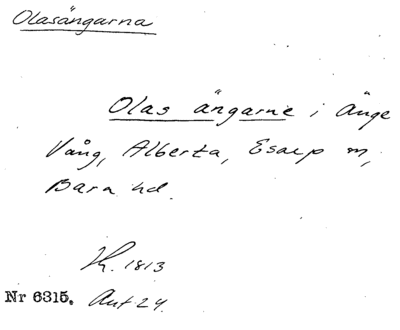 Olasängarna
Olas ängarne i Änge
Vång, Alberta, Esarp m,
Bara hd.
1813
Nr 6315. Akt 24.